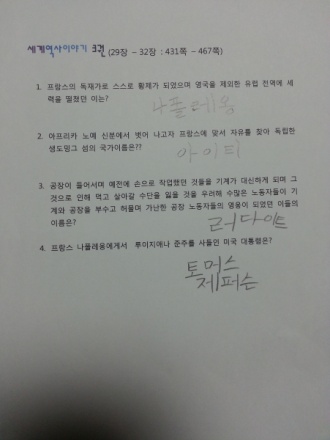 세계역사이야기 3권 (29장 – 32장 : 431쪽 – 467쪽)
1. 프랑스의 독재가로 스스로 황제가 되었으며 영국을 제외한 유럽 전역에 세
력을 떨쳤던 이는?
나폴레옹
2. 아프리카 노예 신분에서 벗어 나고자 프랑스에 맞서 자유를 찾아 독립한
생도밍그 섬의 국가이름은??
아이티
3. 공장이 들어서며 예전에 손으로 작업했던 것들을 기계가 대신하게 되며 그
것으로 인해 먹고 살아갈 수단을 잃을 것을 우려해 수많은 노동자들이 기
계와 공장을 부수고 허물며 가난한 공장 노동자들의 영웅이 되었던 이들의
이름은?
러다이트
4. 프랑스 나폴레옹에게서 루이지애나 준주를 사들인 미국 대통령은?
토머스
제퍼슨